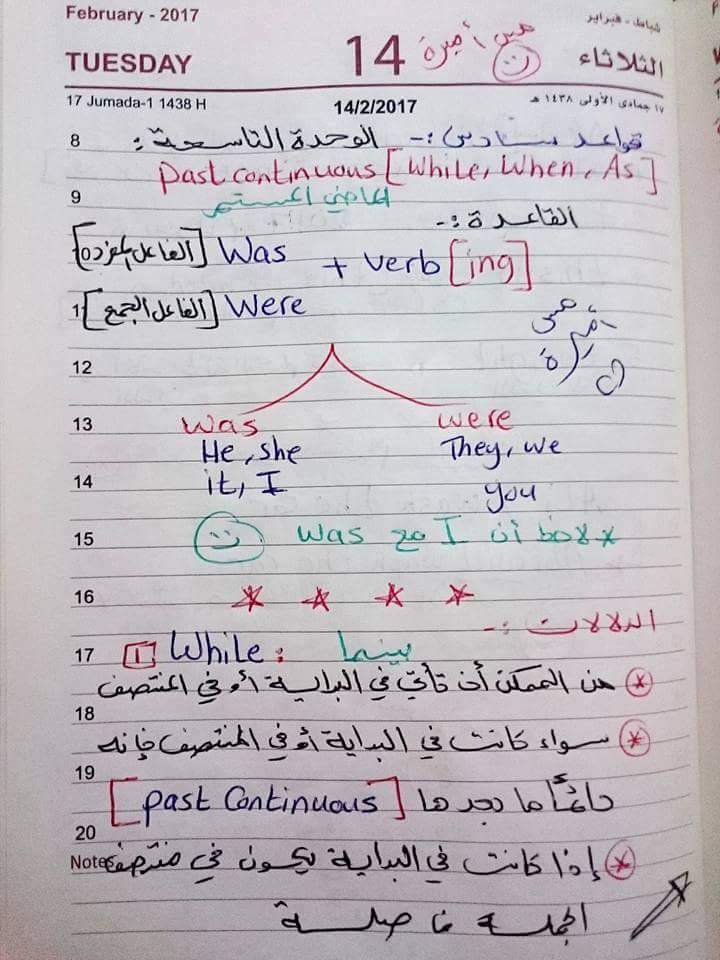 February - 2017 شباط - فبراير
TUESDAY 14 الثلاثاء
مس أميرة
17 Jumada-1 1438 H 14/2/2017 ١٧ جمادى الأولى ١٤٣٨ هـ
8 قواعد سادس :- الوحدة التاسعة :
past continuous [While, When, As]
9 الماضي المستمر
القاعدة :-
[الفاعل المفرد] Was + verb [ing]
1 [الفاعل الجمع] Were
مس أميرة
12
13 was were
He, she They, we
14 it, I you
15 * لاحظ أن I مع was
16
الدلالات :-
17 1 While : بينما
* من الممكن أن تأتي في البداية أو في المنتصف
18
* سواء كانت في البداية أو في المنتصف فإنه
19
دائماً ما بعدها [past Continuous]
20
Notes * إذا كانت في البداية يكون في منتصف
الجملة فاصلة